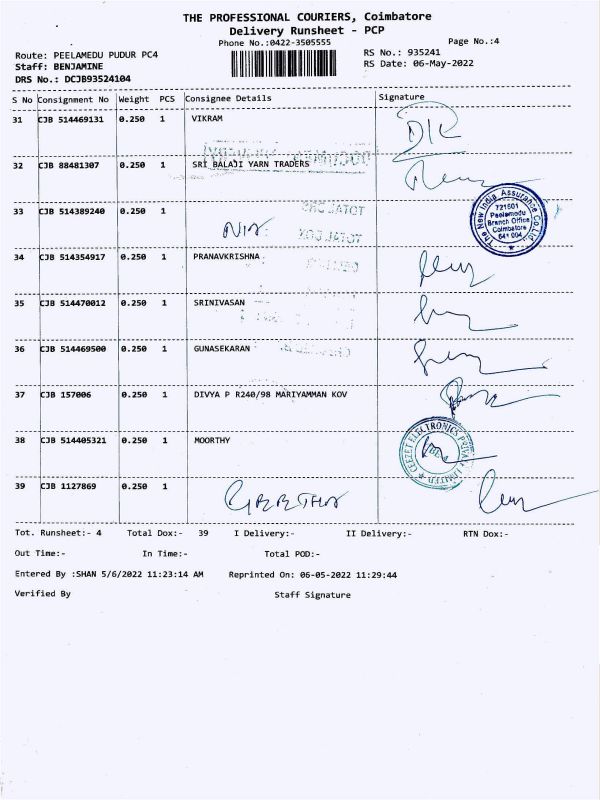 THE PROFESSIONAL COURIERS, Coimbatore
Delivery Runsheet - PCP
Phone No.:0422-3505555
Page No.:4
Route: PEELAMEDU PUDUR PC4
RS No.: 935241
Staff: BENJAMINE
RS Date: 06-May-2022
DRS No.: DCJB93524104
S No Consignment No Weight PCS Consignee Details Signature
31 CJB 514469131 0.250 1 VIKRAM
32 CJB 88481307 0.250 1 SRI BALAJI YARN TRADERS
33 CJB 514389240 0.250 1
The New India Assurance Co. Ltd.
721601
Peelamedu
Branch Office
Coimbatore
641 004
34 CJB 514354917 0.250 1 PRANAVKRISHNA
35 CJB 514470012 0.250 1 SRINIVASAN
36 CJB 514469500 0.250 1 GUNASEKARAN
37 CJB 157006 0.250 1 DIVYA P R240/98 MARIYAMMAN KOV
38 CJB 514405321 0.250 1 MOORTHY
CEEZET ELECTRONICS PRIVATE LIMITED
39 CJB 1127869 0.250 1 GEETHA
Tot. Runsheet:- 4 Total Dox:- 39 I Delivery:- II Delivery:- RTN Dox:-
Out Time:- In Time:- Total POD:-
Entered By :SHAN 5/6/2022 11:23:14 AM Reprinted On: 06-05-2022 11:29:44
Verified By Staff Signature